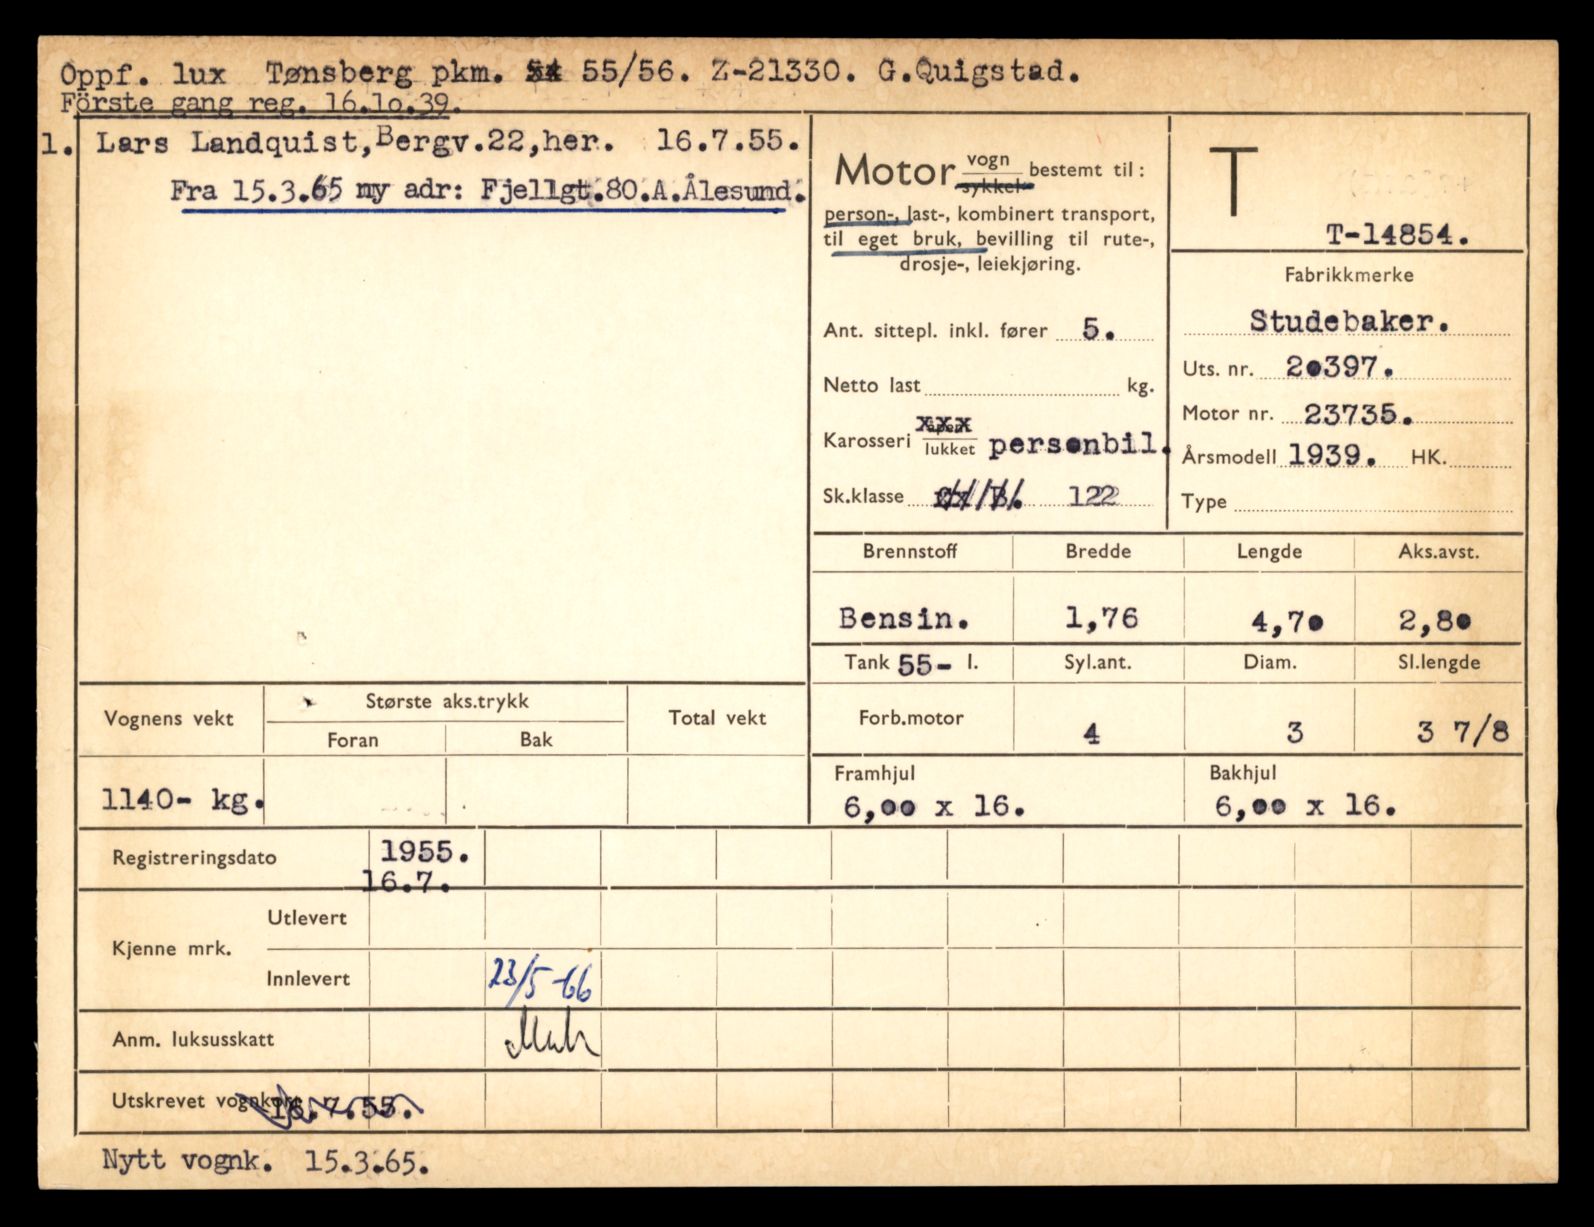 Oppf. lux Tønsberg pkm. 55/56. Z-21330. G.Quigstad.
Förste gang reg. 16.1o.39.
1. Lars Landquist, Bergv.22,her. 16.7.55.
Fra 15.3.65 ny adr: Fjellgt.80.A.Ålesund.
Motor vogn sykkel bestemt til:
person-, last-, kombinert transport,
til eget bruk, bevilling til rute-,
drosje-, leiekjøring.
Ant. sittepl. inkl. fører 5.
Netto last kg.
Karosseri åpen lukket personbil.
Sk.klasse 122
T
T-14854.
Fabrikkmerke
Studebaker.
Uts. nr. 20397.
Motor nr. 23735.
Årsmodell 1939. HK.
Type
Brennstoff Bredde Lengde Aks.avst.
Bensin. 1,76 4,70 2,80
Tank 55- l. Syl.ant. Diam. Sl.lengde
Forb.motor 4 3 3 7/8
Framhjul Bakhjul
6,00 x 16. 6,00 x 16.
Vognens vekt Største aks.trykk Total vekt
Foran Bak
1140- kg.
Registreringsdato 1955.
16.7.
Kjenne mrk. Utlevert
Innlevert 23/5-66
Anm. luksusskatt
Utskrevet vognkort 16.7.55.
Nytt vognk. 15.3.65.